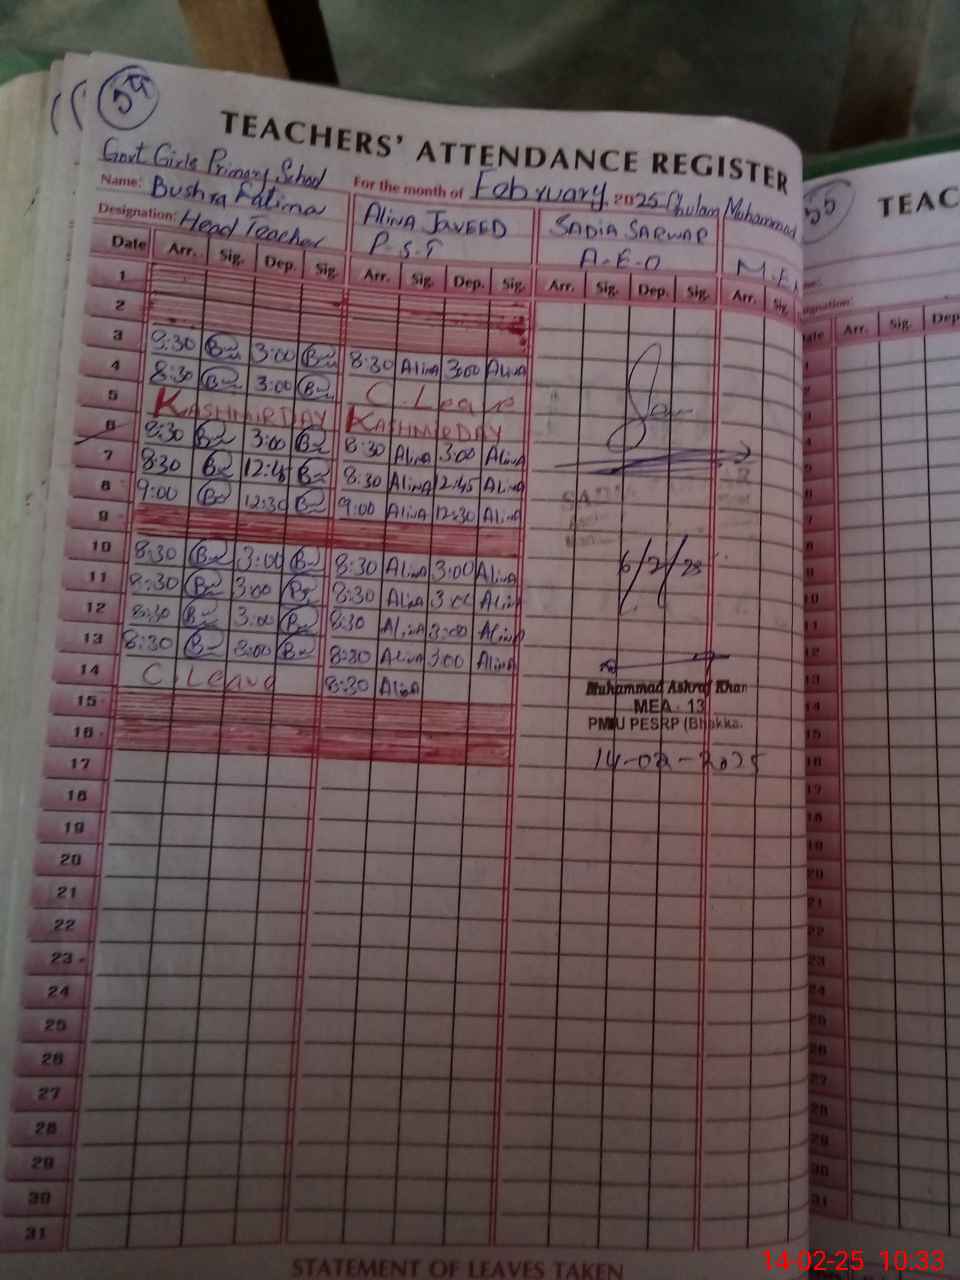 54
TEACHERS' ATTENDANCE REGISTER
Govt Girls Primary School
For the month of February 2025 Ghulam Muhammad
Name: Bushra Fatima ALINA JAVEED SADIA SARWAR
Designation: Head Teacher P.S.T A.E.O
Date Arr. Sig. Dep. Sig. Arr. Sig. Dep. Sig. Arr. Sig. Dep. Sig. Arr. Sig.
1
2
3 8:30 3:00 8:30 Alina 3:00 Alina
4 8:30 3:00 C.Leave
5 KASHMIR DAY KASHMIR DAY
6 8:30 3:00 8:30 Alina 3:00 Alina
7 8:30 12:45 8:30 Alina 12:45 Alina
8 9:00 12:30 9:00 Alina 12:30 Alina
9
10 8:30 3:00 8:30 Alina 3:00 Alina
11 8:30 3:00 8:30 Alina 3:00 Alina
12 8:30 3:00 8:30 Alina 3:00 Alina
13 8:30 3:00 8:30 Alina 3:00 Alina
14 C.Leave 8:30 Alina
15
16
17
18
19
20
21
22
23
24
25
26
27
28
29
30
31
6/2/25
Muhammad Ashraf Khan
MEA - 13
PMIU PESRP (Bhakka
14-02-2025
STATEMENT OF LEAVES TAKEN
55
TEAC
Arr. Sig. Dep
14-02-25 10:33